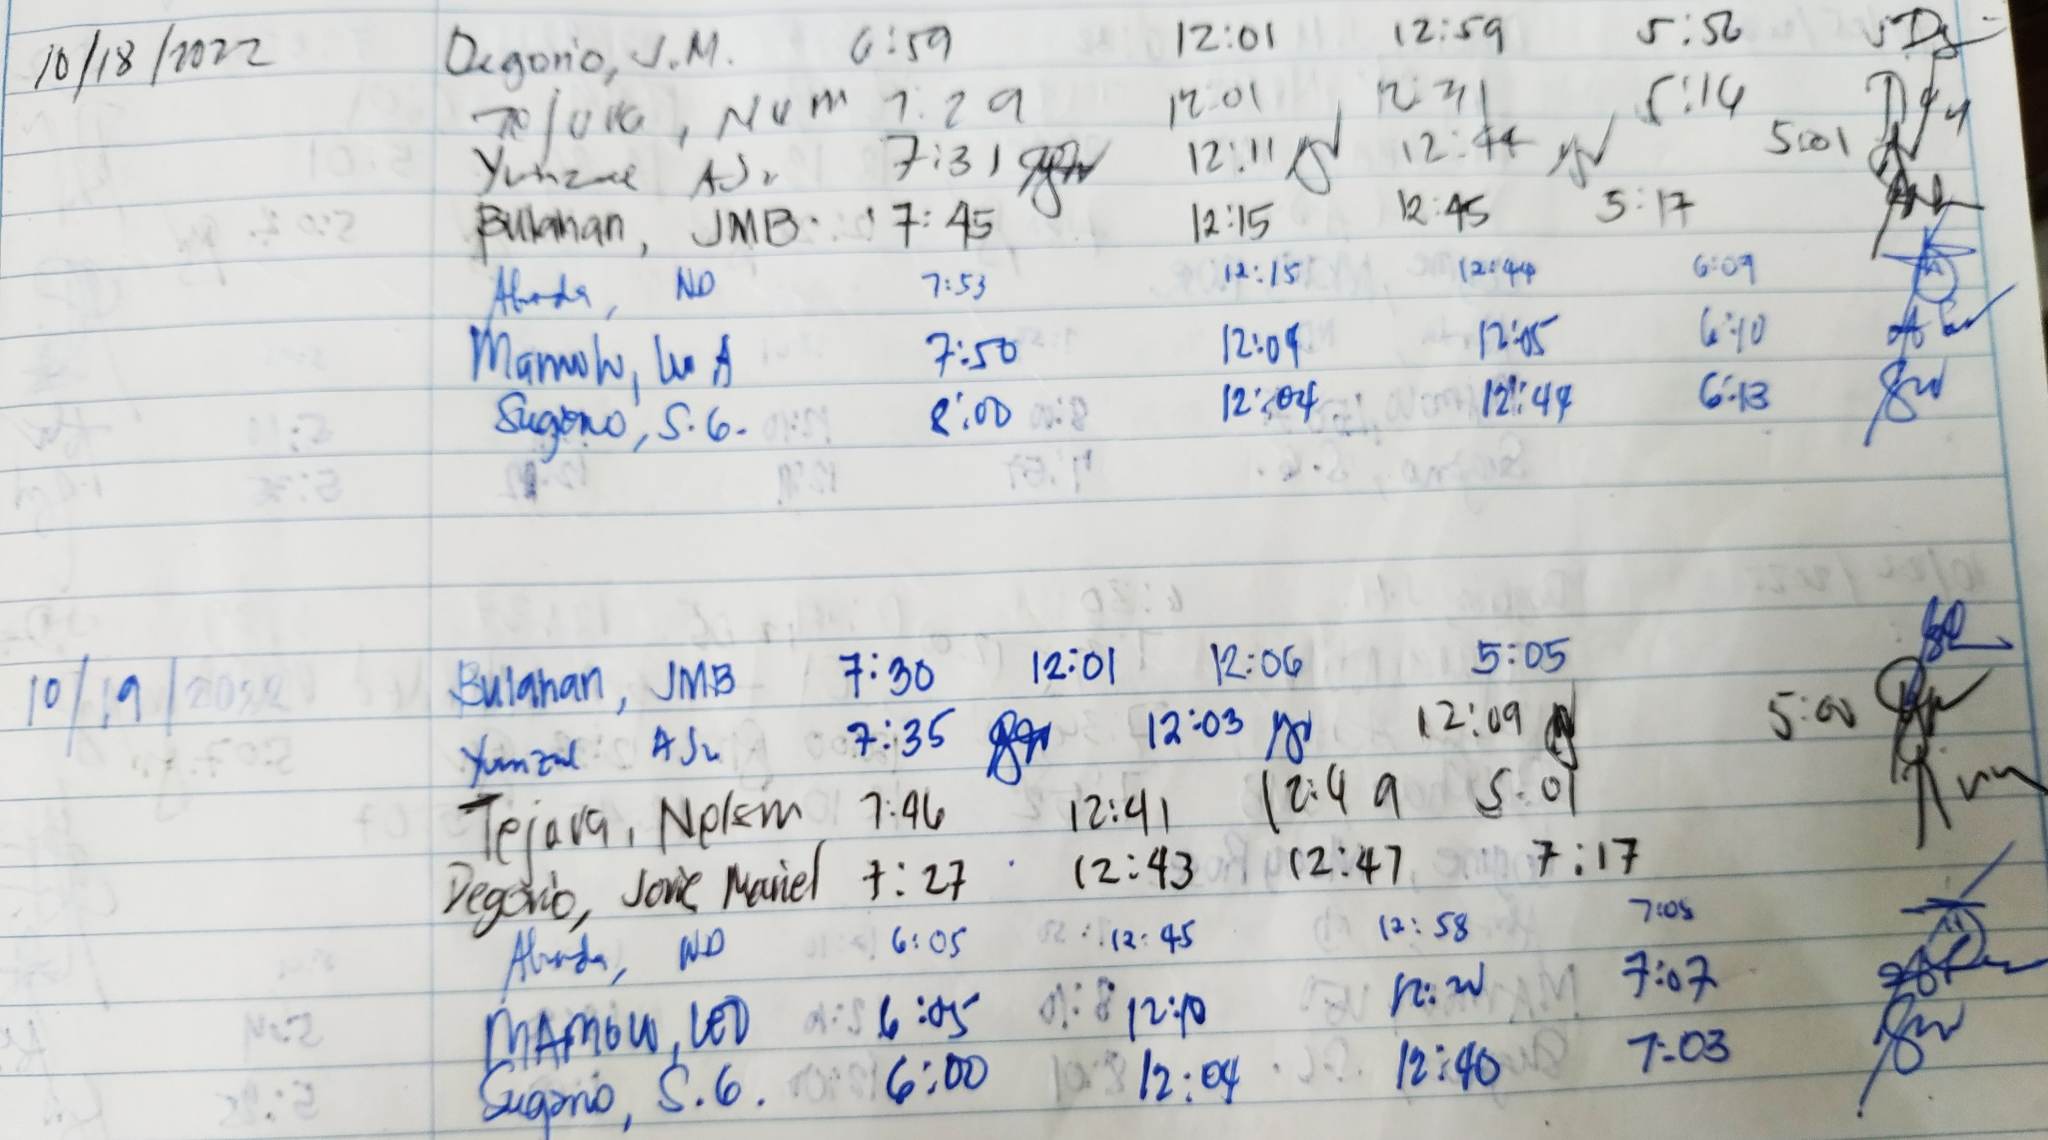 10/18/2022 Degorio, J.M. 6:59 12:01 12:59 5:56
Tejava, 7:29 12:01 12:41 5:14
Yumzal AJr 7:31 12:11 12:44 5:01
Bulahan, JMB 7:45 12:15 12:45 5:17
Abada, ND 7:53 12:15 12:44 6:09
Mamolo, 7:50 12:09 12:05 6:10
Sugano, S.G. 8:00 12:04 12:44 6:13
10/19/2022 Bulahan, JMB 7:30 12:01 12:06 5:05
Yumzal AJr 7:35 12:03 12:09 5:00
Tejava, Nelson 7:46 12:41 12:49 5:01
Degorio, Jorie Mariel 7:27 12:43 12:47 7:17
Abada, ND 6:05 12:45 12:58 7:05
MAMOLO, LEO 6:05 12:10 7:07
Sugano, S.G. 6:00 12:04 12:40 7:03